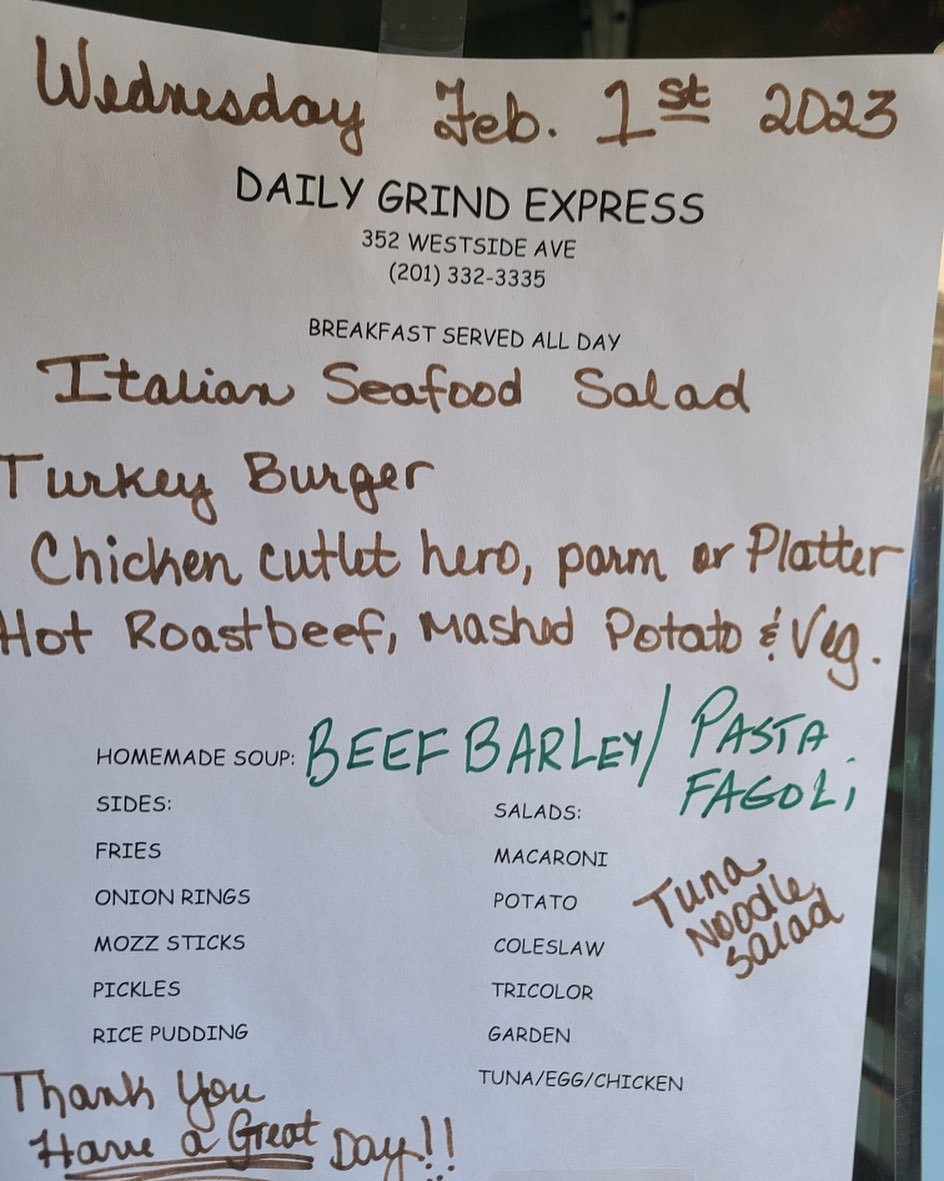 Wednesday Feb. 1st 2023
DAILY GRIND EXPRESS
352 WESTSIDE AVE
(201) 332-3335
BREAKFAST SERVED ALL DAY
Italian Seafood Salad
Turkey Burger
Chicken cutlet hero, parm or Platter
Hot Roastbeef, Mashed Potato & Veg.
HOMEMADE SOUP: BEEF BARLEY/ PASTA
FAGOLi
SIDES:
FRIES
ONION RINGS
MOZZ STICKS
PICKLES
RICE PUDDING
SALADS:
MACARONI
POTATO
COLESLAW
TRICOLOR
GARDEN
TUNA/EGG/CHICKEN
Tuna
Noodle
Salad
Thank You
Have a Great Day!!